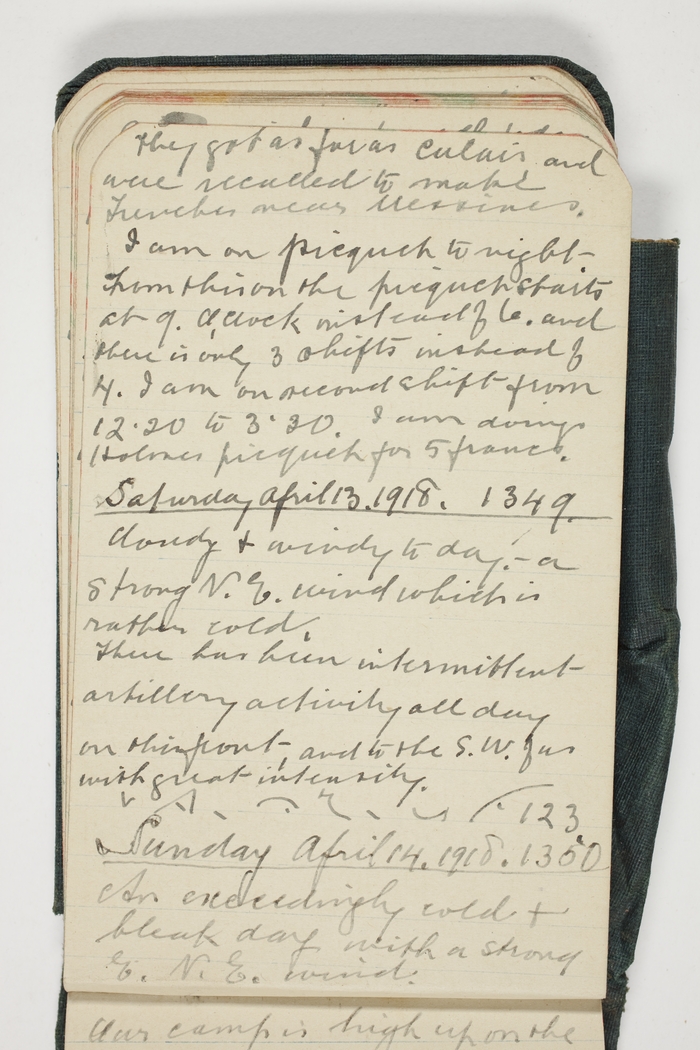 They got as far as Calais and
were recalled to make
trenches near Messines.
I am on picquet to night -
from this on the picquet starts
at 9. O'clock instead of 6. and
there is only 3 shifts instead of
4. I am on second shift from
12.20 to 3.30. I am doing
Holmes picquet for 5 francs.
Saturday April 13. 1918. 1349.
Cloudy & windy to day. - a
strong N. E. wind which is
rather cold.
There has been intermittent
artillery activity all day
on this front, and to the S.W. of us
with great intensity.
123
Sunday April 14. 1918. 1350
An exceedingly cold &
bleak day with a strong
E. N. E. wind.
Our camp is high up on the